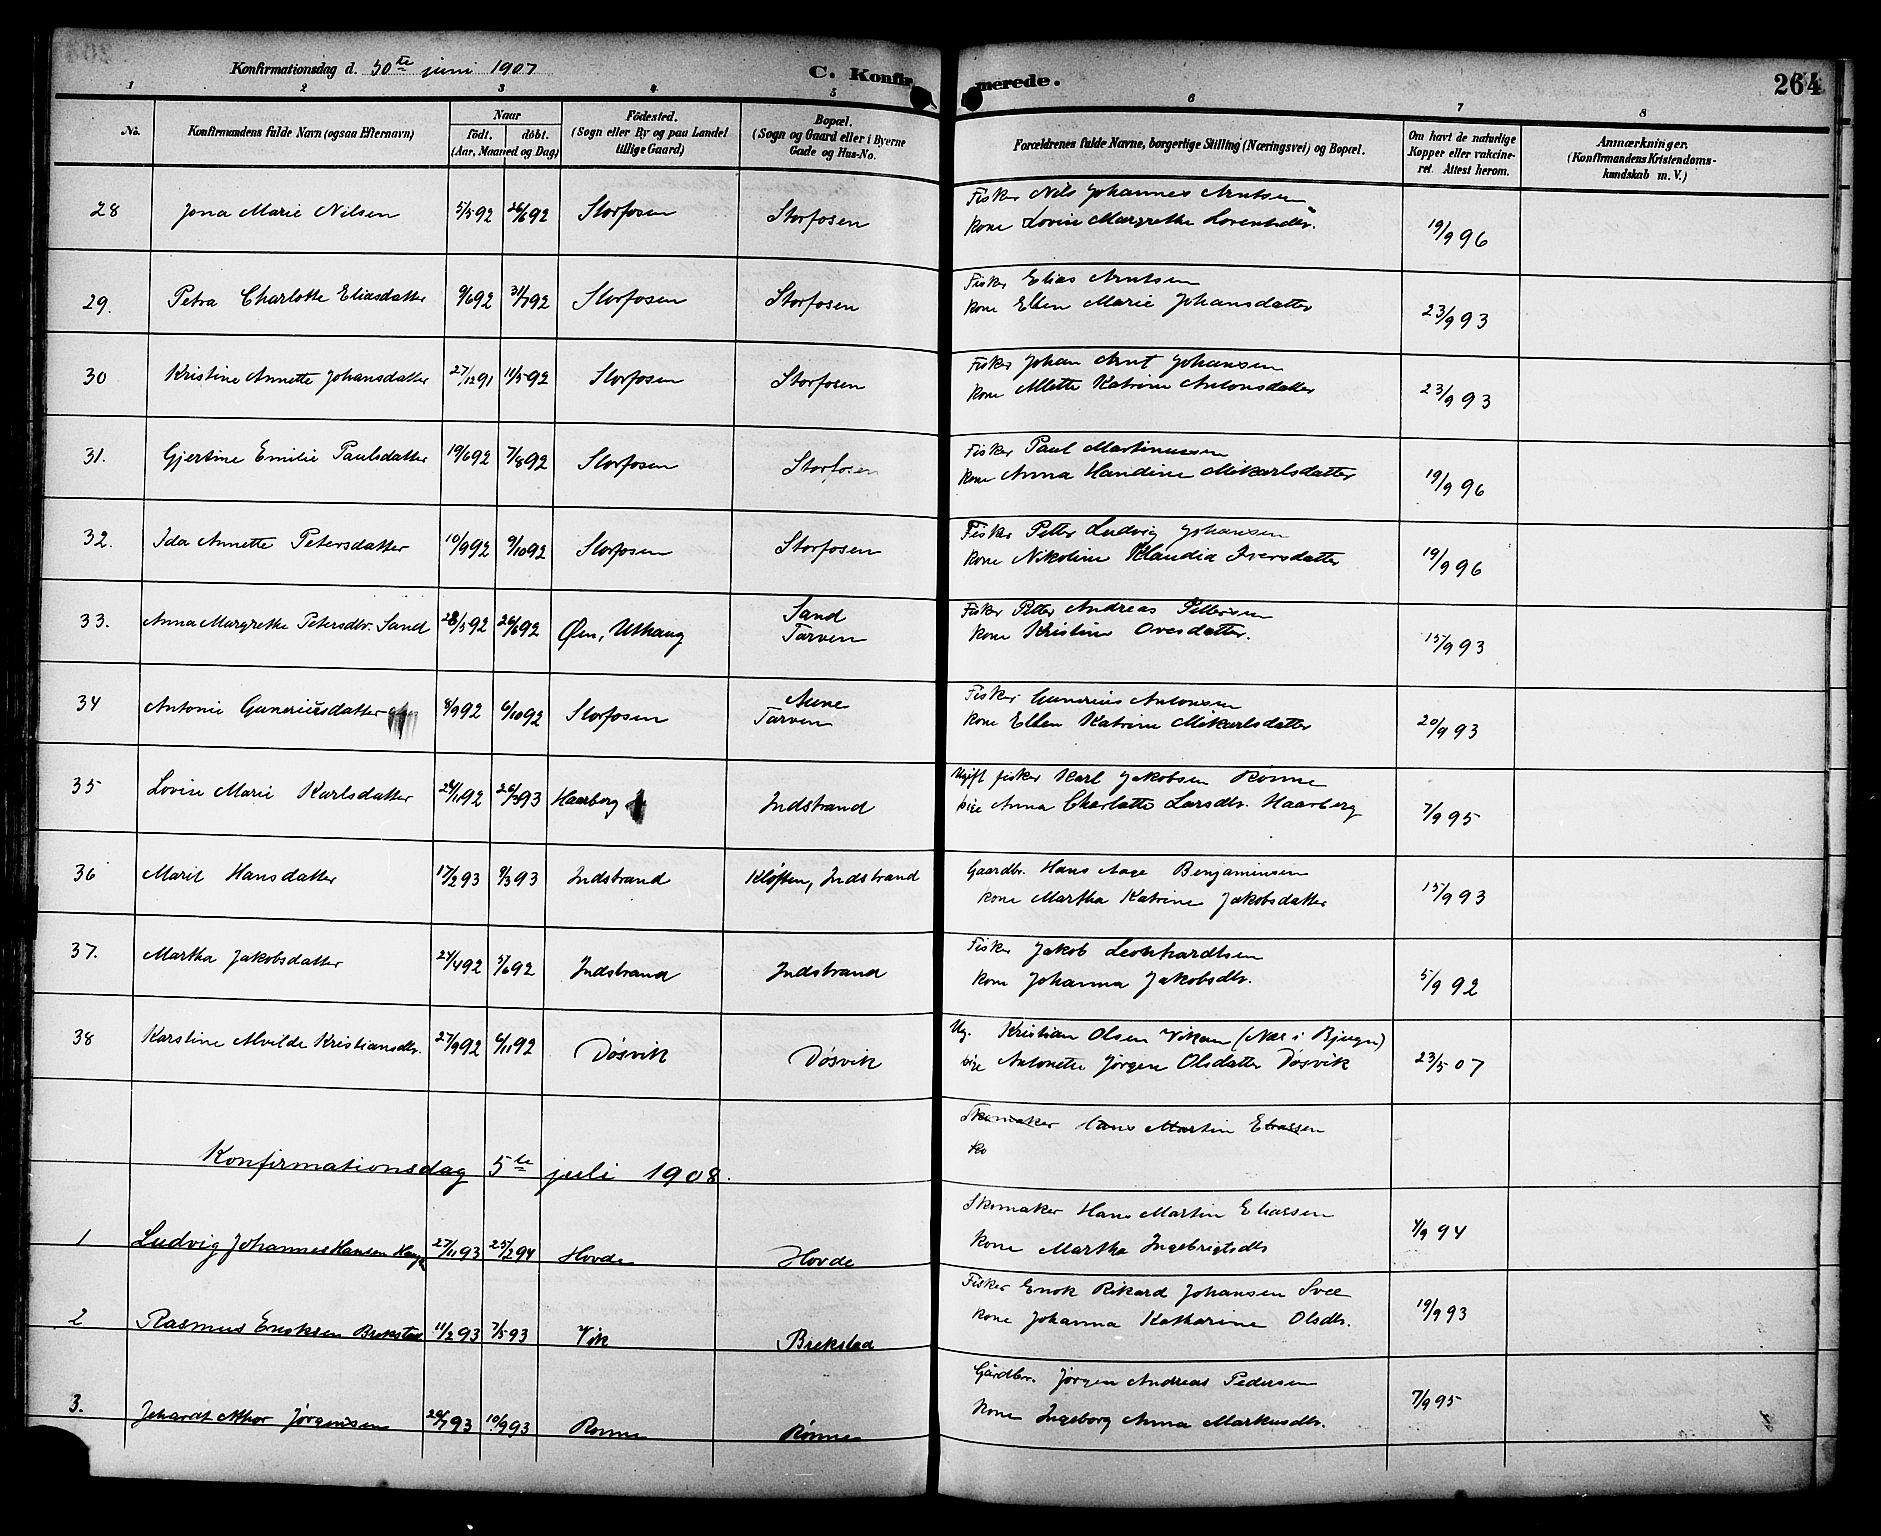 Konfirmationsdag d. 30te juni 1907 C. Konfirmerede. 264
1 2 3 4 5 6 7 8
No. Konfirmandens fulde Navn (ogsaa Efternavn) Naar født. døbt. (Aar, Maaned og Dag) Fødested. (Sogn eller By og paa Landet tillige Gaard) Bopæl. (Sogn og Gaard eller i Byerne Gade og Hus-No. Forældrenes fulde Navne, borgerlige Stilling (Næringsvei) og Bopæl. Om havt de naturlige Kopper eller vakcineret. Attest herom. Anmærkninger. (Konfirmandens Kristendomskundskab m. V.)
28 Jona Marie Nilsen 5/5 92 26/6 92 Storfosen Storfosen Fisker Nils Johannes Arntsen
kone Lovise Margrethe Lorentsdtr. 19/9 96
29. Petra Charlotte Eliasdatter 9/6 92 31/7 92 Storfosen Storfosen Fisker Elias Arntsen
kone Ellen Marie Johansdatter 23/9 93
30 Kristine Annette Johansdatter 27/12 91 11/5 92 Storfosen Storfosen Fisker Johan Arnt Johansen
kone Mette Katrine Antonsdatter 23/9 93
31. Gjertine Emilie Paulsdatter 19/6 92 7/8 92 Storfosen Storfosen Fisker Paul Martinussen
kone Anna Handine Mikarlsdatter 19/9 96
32. Ida Annette Petersdatter 10/9 92 9/10 92 Storfosen Storfosen Fisker Petter Ludvig Johansen
kone Nikoline Klaudia Iversdatter 19/9 96
33. Anna Margrethe Petersdtr. Sand 28/5 92 26/6 92 Øen, Uthaug Sand Tarven Fisker Petter Andreas Pettersen
kone Kristine Ovesdatter. 15/9 93
34 Antonie Guneriusdatter 8/9 92 6/10 92 Storfosen Aune Tarven Fisker Gunerius Antonsen
kone Ellen Katrine Mikarlsdatter 20/9 93
35 Lovise Marie Karlsdatter 24/11 92 26/3 93 Haarberg Indstrand Ugift fisker Karl Jakobsen Rønne
pige Anna Charlotte Larsdtr. Haarberg 7/9 95
36 Marit Hansdatter 17/2 93 9/3 93 Indstrand Kløften, Indstrand Gaardbr. Hans Aage Benjaminsen
kone Martha Katrine Jakobsdatter 15/9 93
37. Martha Jakobsdatter 24/4 92 5/6 92 Indstrand Indstrand Fisker Jakob Leonhardtsen
kone Johanna Jakobsdtr. 5/9 92
38 Karstine Alvilde Kristiansdtr. 27/9 92 6/11 92 Døsvik Døsvik Ug. Kristian Olsen Vikan (Nær i Bjugn)
pige Antonette Jørgen Olsdatter Døsvik 23/5 07
Skomaker Hans Martin Eliassen
ko
Konfirmationsdag 5te juli 1908.
1 Ludvig Johannes Hansen 27/11 93 25/2 94 Hovde Hovde Skomaker Hans Martin Eliassen
kone Martha Ingebrigtsdtr 4/9 94
2 Rasmus Enoksen Brekstad 11/2 93 7/5 93 Vik Brekstad Fisker Enok Rikard Johansen Svee
kone Johanna Katharina Olsdtr. 19/9 93
3. Jørgensen 20/7 93 10/9 93 Rønne Rønne Gårdbr. Jørgen Andreas Pedersen
kone Ingeborg Anna Markusdtr. 7/9 95